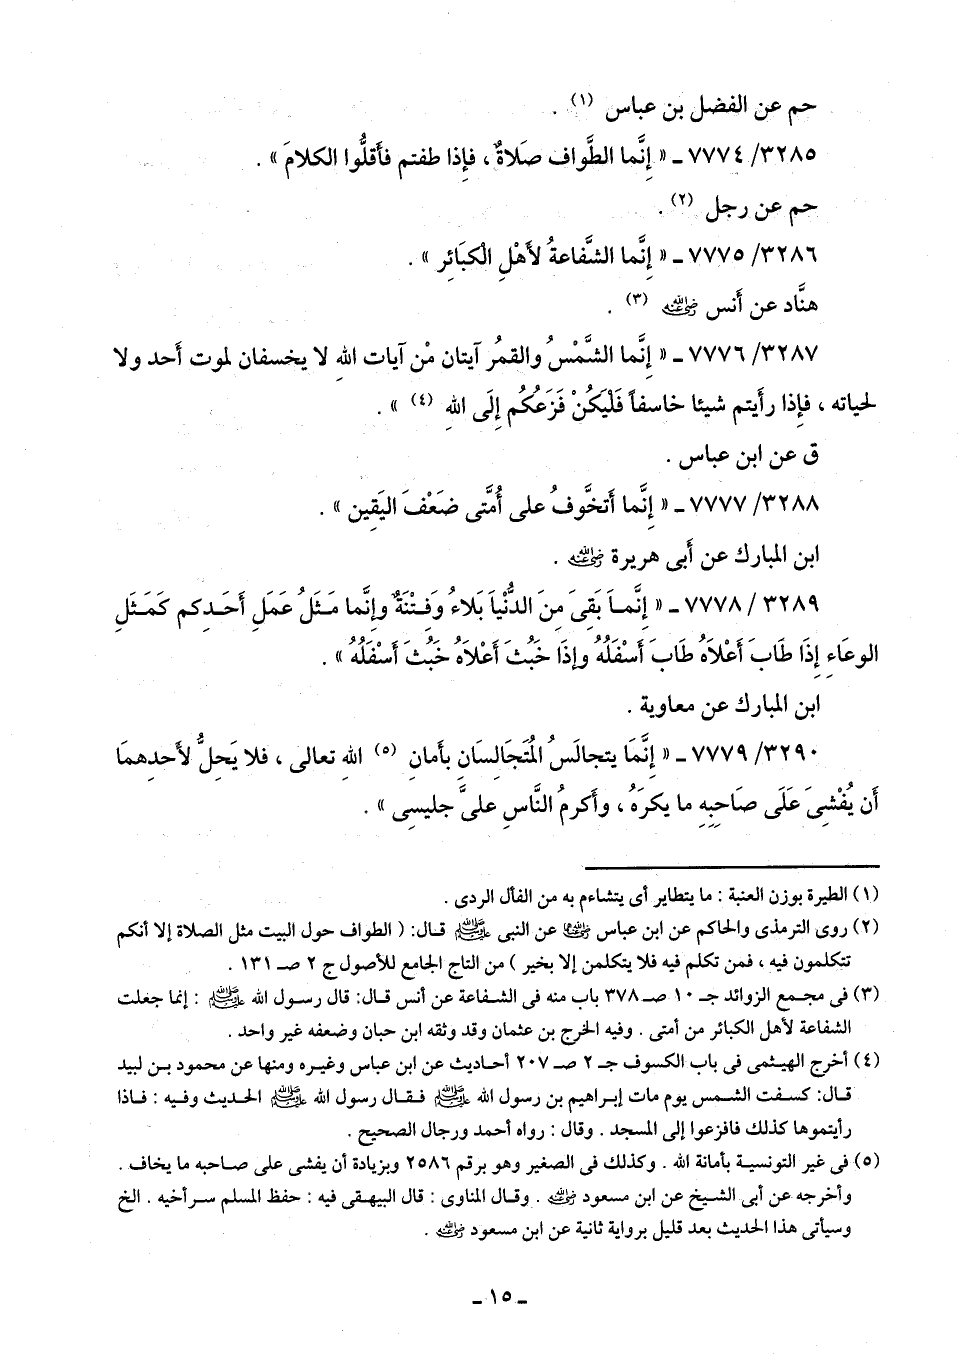 حم عن الفضل بن عباس (١) .
٣٢٨٥/ ٧٧٧٤ ـ « إِنَّما الطَّواف صَلاةٌ ، فإذا طفتم فأَقلُّوا الكلامَ » .
حم عن رجل (٢) .
٣٢٨٦/ ٧٧٧٥ ـ « إِنَّما الشَّفاعةُ لأَهْلِ الْكبَائِر » .
هنَّاد عن أَنس رضي الله عنه (٣) .
٣٢٨٧/ ٧٧٧٦ ـ « إِنَّما الشَّمْسُ والقمرُ آيتان مْن آيات اللهِ لا يخسفان لموت أَحد ولا
لحياته ، فإذا رأَيتم شيئا خاسفاً فَلْيَكُنْ فَزَعُكُم إِلَى اللهِ (٤) » .
ق عن ابن عباس .
٣٢٨٨/ ٧٧٧٧ ـ « إِنَّما أَتخَّوفُ على أُمَّتى ضَعْفَ اليَقِين » .
ابن المبارك عن أَبى هريرة رضي الله عنه .
٣٢٨٩ / ٧٧٧٨ ـ « إِنَّماَ بَقِىَ مِنَ الدُّنْياَ بَلاءُ وَفِتْنَةٌ وإِنَّما مَثَلُ عَمَلِ أَحَدِكم كَمَثَلِ
الوعَاءِ إِذَا طَابَ أَعْلاَهُ طَابَ أَسْفَلُهُ وإِذَا خَبُثَ أَعْلاَهُ خَبُثَ أَسْفَلُهُ » .
ابن المبارك عن معاوية .
٣٢٩٠/ ٧٧٧٩ ـ « إِنَّمَا يتجالَسُ المُتَجَالِسَانِ بأَمانِ (٥) اللهِ تعالى ، فلا يَحِلُّ لأَحدِهمَا
أَن يُفْشِىَ عَلَى صَاحِبِهِ ما يكرَهُ ، وأَكرمُ النَّاسِ علىَّ جليسِى » .
(١) الطيرة بوزن العنبة : ما يتطاير أى يتشاءم به من الفأل الردى .
(٢) روى الترمذى والحاكم عن ابن عباس رضي الله عنهما عن النبى ﷺ قال: ( الطواف حول البيت مثل الصلاة إلا أنكم
تتكلمون فيه ، فمن تكلم فيه فلا يتكلمن إلا بخير ) من التاج الجامع للأصول ج ٢ صـ ١٣١ .
(٣) فى مجمع الزوائد جـ ١٠ صـ ٣٧٨ باب منه فى الشفاعة عن أنس قال: قال رسول الله ﷺ : إنما جعلت
الشفاعة لأهل الكبائر من أمتى . وفيه الخرج بن عثمان وقد وثقه ابن حبان وضعفه غير واحد .
(٤) أخرج الهيثمى فى باب الكسوف جـ ٢ صـ ٢٠٧ أحاديث عن ابن عباس وغيره ومنها عن محمود بن لبيد
قال: كسفت الشمس يوم مات إبراهيم بن رسول الله ﷺ فقال رسول الله ﷺ الحديث وفيه : فاذا
رأيتموها كذلك فافزعوا إلى المسجد . وقال : رواه أحمد ورجال الصحيح .
(٥) فى غير التونسية بأمانة الله . وكذلك فى الصغير وهو برقم ٢٥٨٦ وبزيادة أن يفشى على صاحبه ما يخاف .
وأخرجه عن أبى الشيخ عن ابن مسعود رضي الله عنه . وقال المناوى : قال البيهقى فيه : حفظ المسلم سر أخيه . الخ
وسيأتى هذا الحديث بعد قليل برواية ثانية عن ابن مسعود رضي الله عنه .
ـ ١٥ ـ